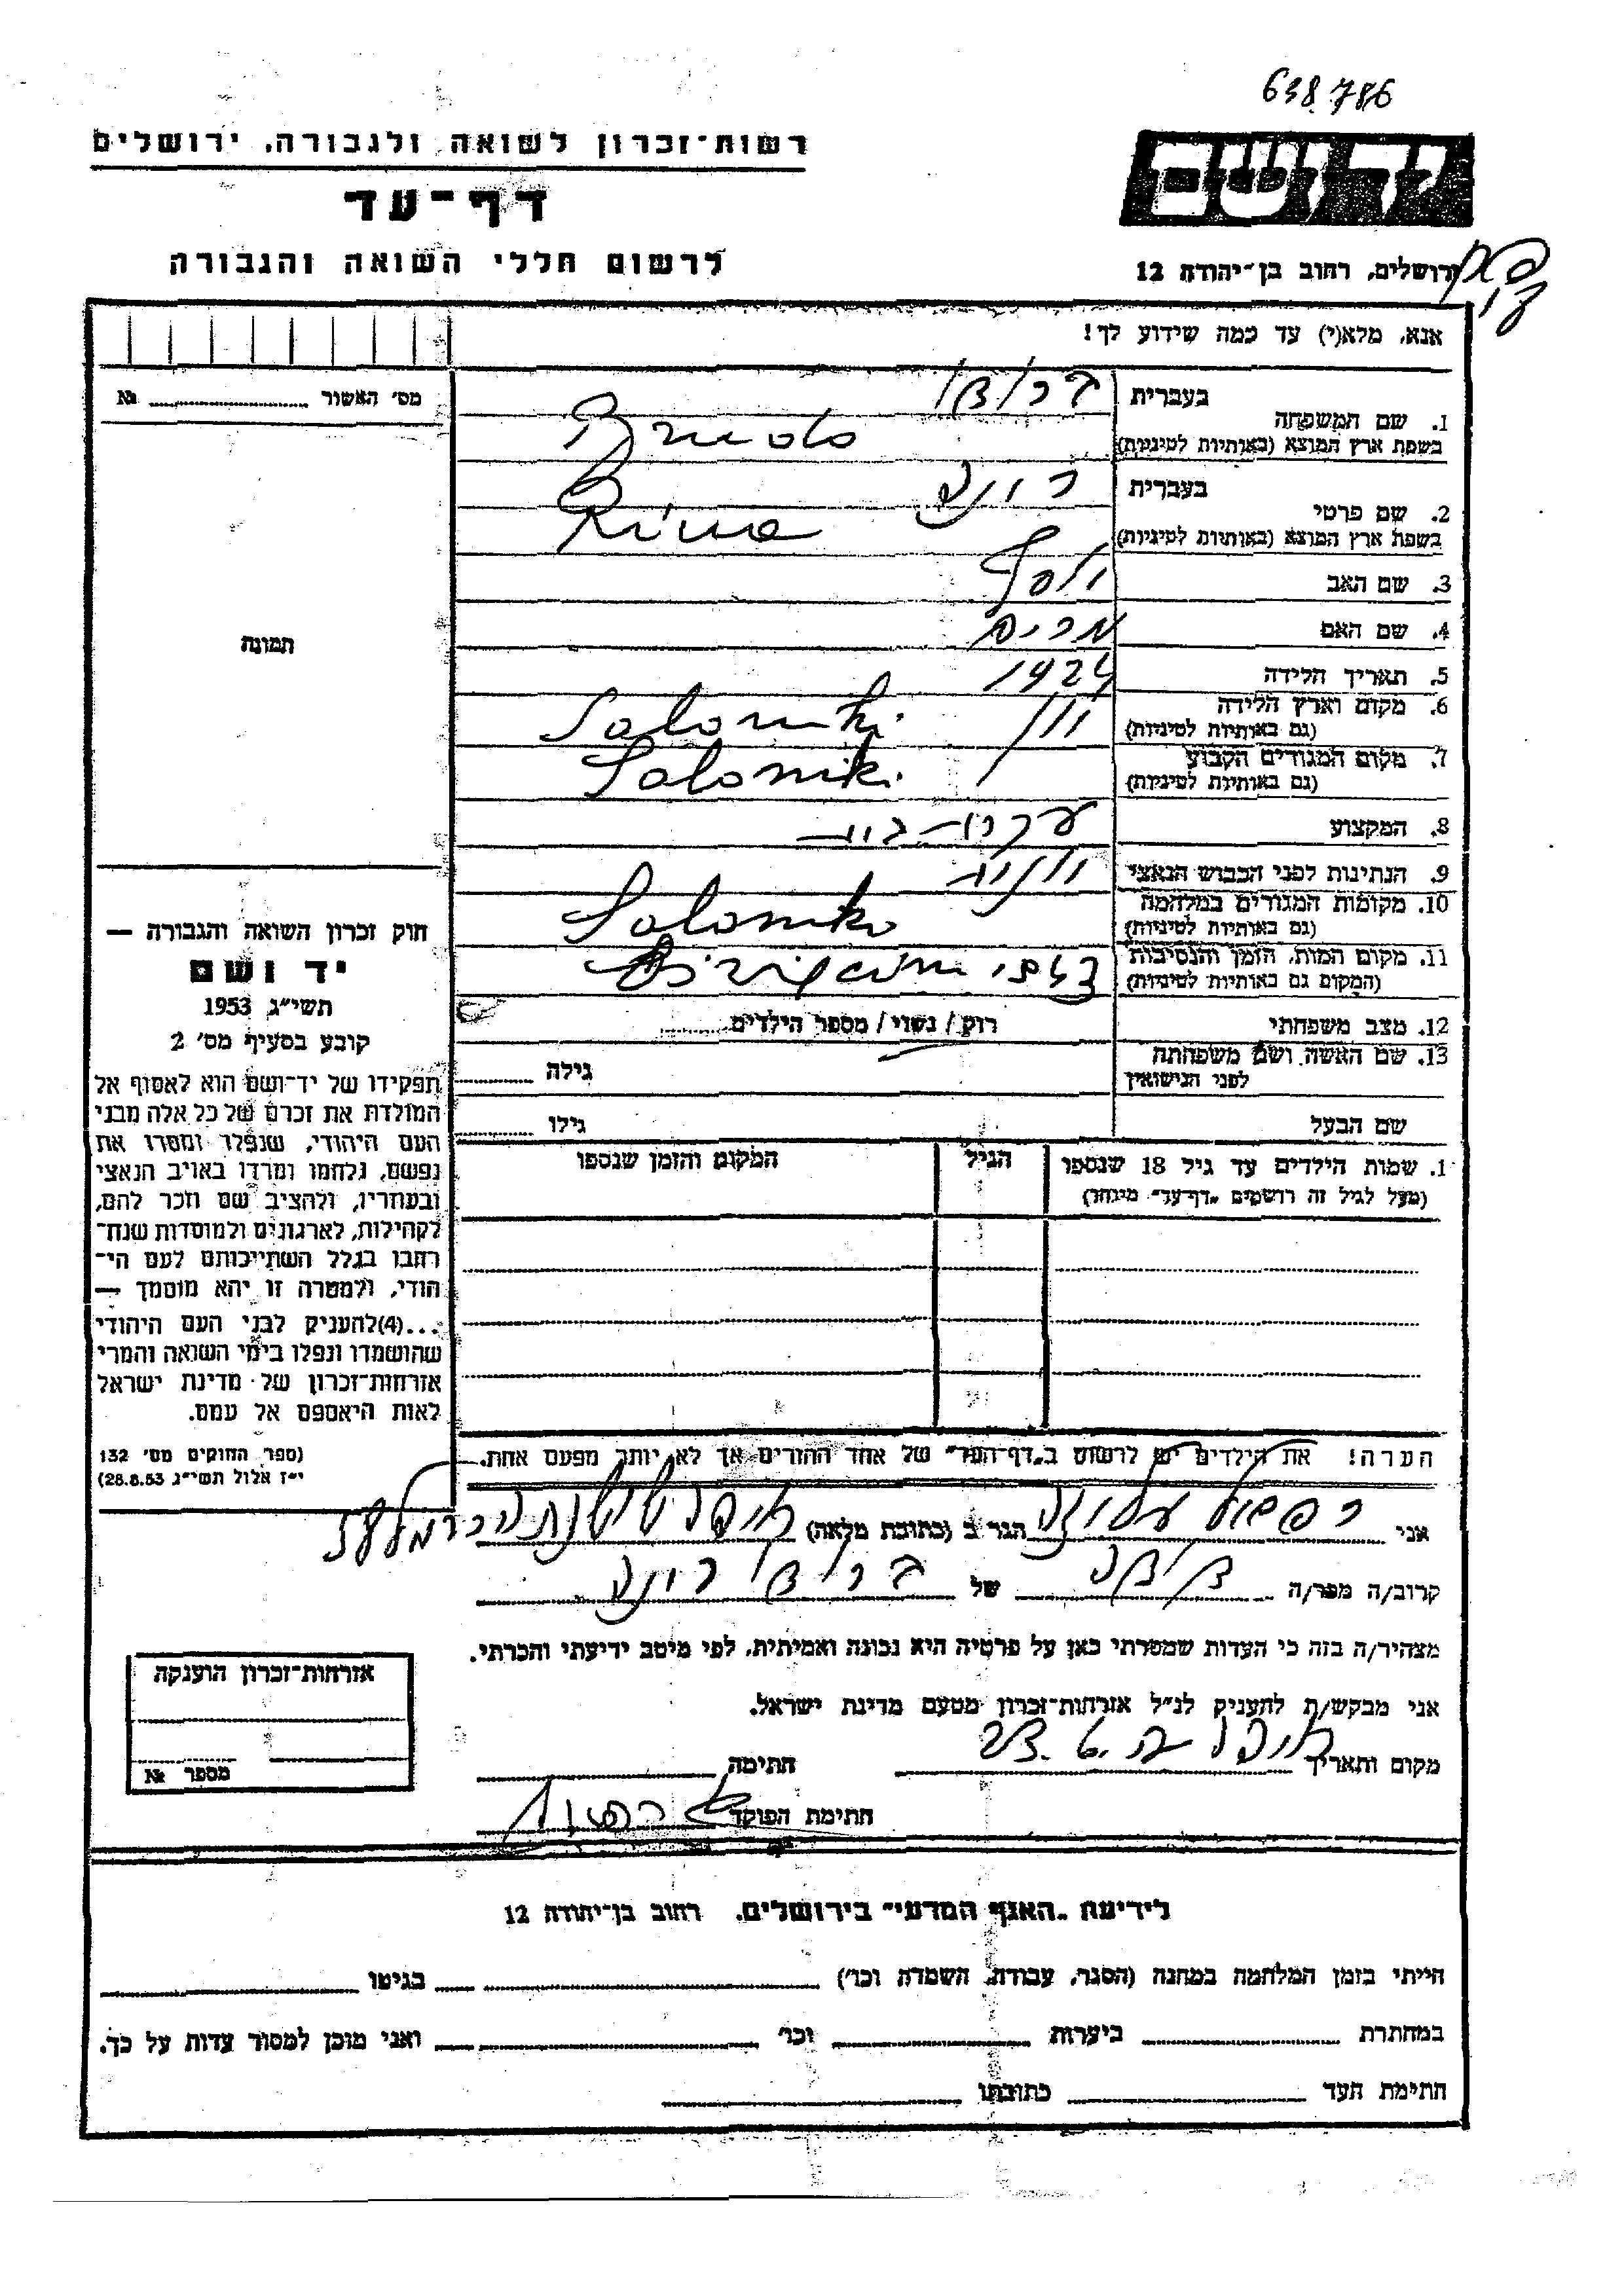 638786
רשות־זכרון לשואה ולגבורה, ירושלים
יד ושם
דף־עד
לרשום חללי השואה והגבורה
ירושלים, רחוב בן־יהודה 12
אנא, מלא(י) עד כמה שידוע לך!
מס׳ האשור № 
תמונה
1. שם המשפחה
בעברית
בשפת ארץ המוצא (באותיות לטיניות) Brudo
2. שם פרטי
בעברית
בשפת ארץ המוצא (באותיות לטיניות) Rina
3. שם האב יוסף
4. שם האם מרים
5. תאריך הלידה 1924
6. מקום וארץ הלידה
(גם באותיות לטיניות) יוון Saloniki
7. מקום המגורים הקבוע
(גם באותיות לטיניות) Saloniki
8. המקצוע עקרת־בית
9. הנתינות לפני הכבוש הנאצי
10. מקומות המגורים במלחמה
(גם באותיות לטיניות)
11. מקום המות, הזמן והנסיבות
(המקום גם באותיות לטיניות)
12. מצב משפחתי רוק / נשוי / מספר הילדים
13. שם האשה ושם משפחתה
לפני הנישואין גילה
שם הבעל גילו
1. שמות הילדים עד גיל 18 שנספו
(מעל לגיל זה רושמים „דף־עד״ מיוחד)
הגיל
המקום והזמן שנספו
הערה! את הילדים יש לרשום ב„דף־העד״ של אחד ההורים אך לא יותר מפעם אחת.
חוק זכרון השואה והגבורה —
יד ושם
תשי״ג 1953
קובע בסעיף מס׳ 2
תפקידו של יד־ושם הוא לאסוף אל
המולדת את זכרם של כל אלה מבני
העם היהודי, שנפלו ומסרו את
נפשם, נלחמו ומרדו באויב הנאצי
ובעוזריו, ולהציב שם וזכר להם,
לקהילות, לארגונים ולמוסדות שנח־
רחבו בגלל השתייכותם לעם הי־
הודי, ולמטרה זו יהא מוסמך —
...(4)להעניק לבני העם היהודי
שהושמדו ונפלו בימי השואה והמרי
אזרחות־זכרון של מדינת ישראל
לאות היאספם אל עמם.
(ספר החוקים מס׳ 132
י״ז אלול תשי״ג 28.8.53)
אני
הגר ב (כתובת מלאה)
קרוב/ה מכר/ה של ברודו רינה
מצהיר/ה בזה כי העדות שמסרתי כאן על פרטיה היא נכונה ואמיתית, לפי מיטב ידיעתי והכרתי.
אני מבקש/ת להעניק לנ״ל אזרחות־זכרון מטעם מדינת ישראל.
מקום ותאריך
חתימה
חתימת הפוקד
אזרחות־זכרון הוענקה
מספר №
לידיעת „האגף המדעי״ בירושלים, רחוב בן־יהודה 12
הייתי בזמן המלחמה במחנה (הסגר, עבודה, השמדה וכו׳) בגיטו
במחתרת ביערות וכו׳ ואני מוכן למסור עדות על כך.
חתימת העד כתובתו